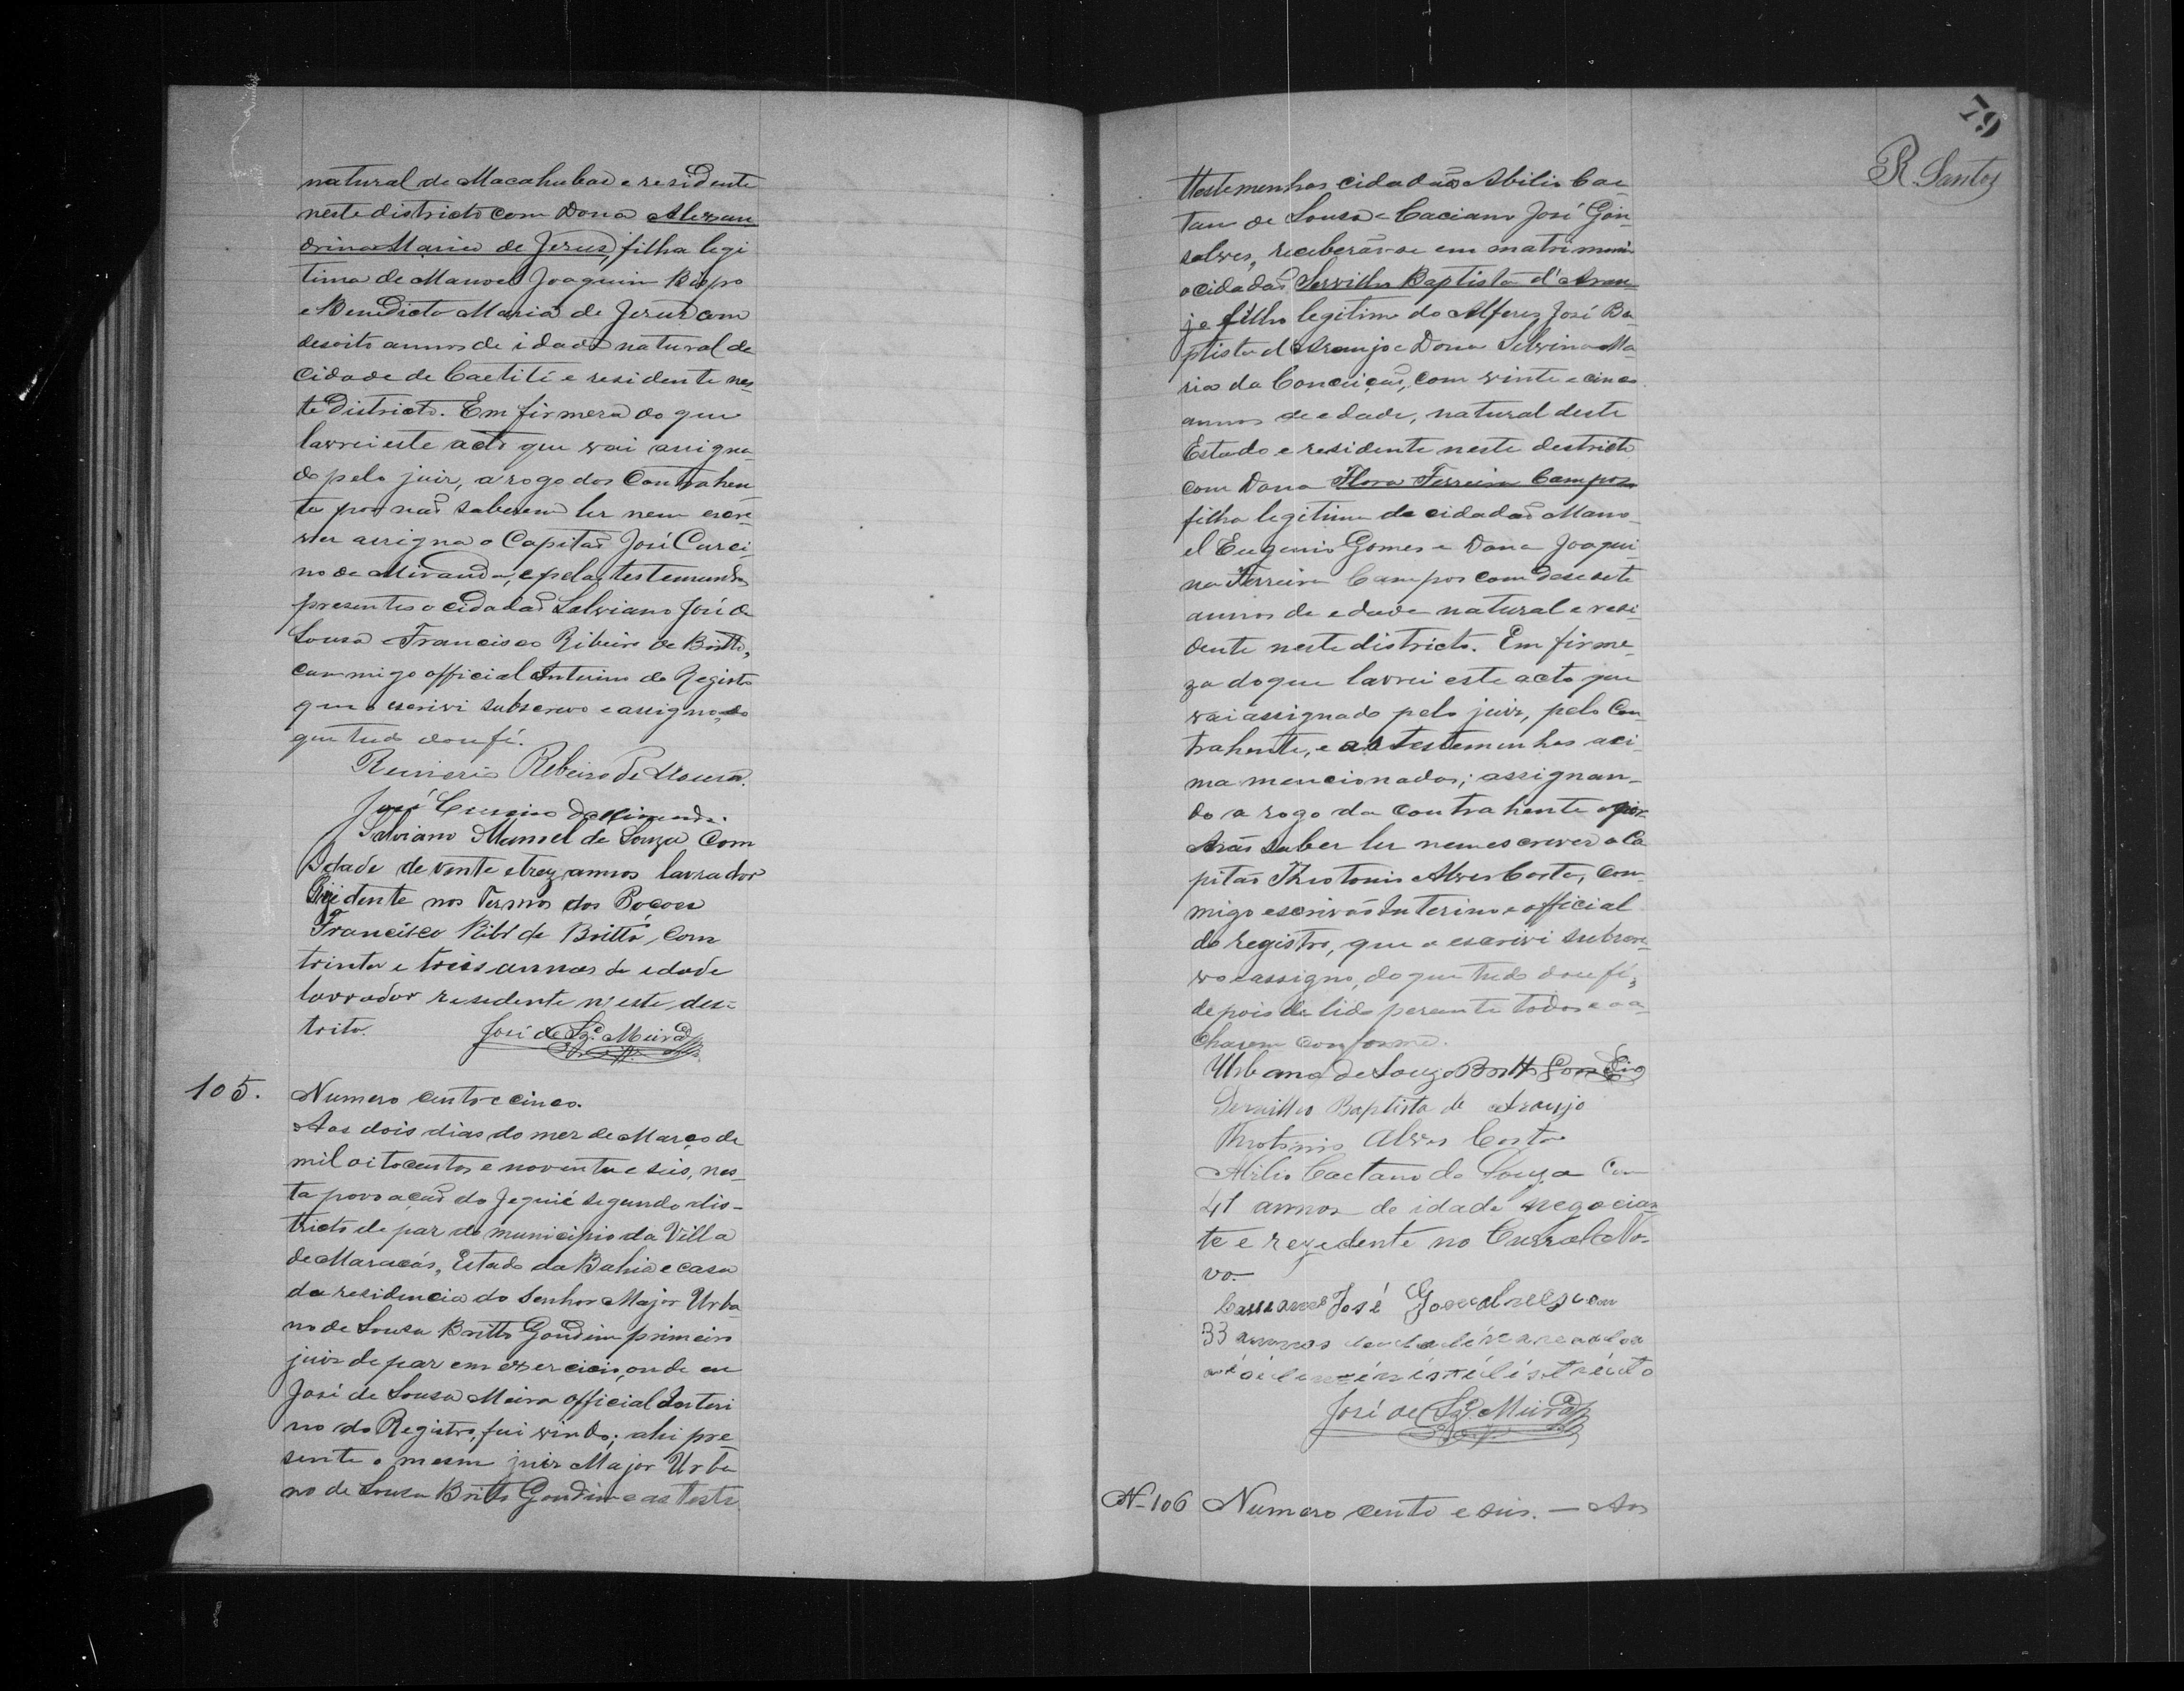 natural de Macahubas e residente
neste districto com Dona Alexan
drina Maria de Jesus, filha legi
tima de Manoel Joaquim Bispo
e Benedicta Maria de Jesus com
desoito annos de idade natural de
Cidade de Caetité e residente nes
te Districto. Em firmeza do que
lavrei este acto que vai assigna-
do pelo juiz, a rogo dos Contrahen
tes por não saberem ler nem escre-
ver assigna o Capitão José Curci-
no de Miranda, e pelas testemunhas
presentes o cidadão Salviano José de
Sousa e Francisco Ribeiro de Britto,
commigo official Interino do Registo
que o escrivi subscrevo e assigno, do
que tudo dou fé.
Ribeiro de Sousa.
José Curcino de Miranda.
Salviano Manoel de Souza, Com
Idade de vente e trez annos lavrador
Rezidente nos Termos dos Poçoes
Francisco Rib.º de Britto, com
trinta e treis annos de edade
lavrador resedente n'este des-
trito.
José de Sz.ª Meira
105. Numero cento e cinco.
Aos dois dias do mez de Março de
mil oitocentos e noventa e seis, nes-
ta povoação do Jequié segundo dis-
tricto de paz do municipio da Villa
de Maracás, Estado da Bahia e casa
da residencia do Senhor Major Urba
no de Sousa Britto Gondim primeiro
juiz de paz em exercicio, onde eu
José de Sousa Meira official Interi
no do Registro, fui vindo; ahi pre
sente o mesmo juiz Major Urba
no de Sousa Britto Gondim e as teste
79
R. Santos
ttestemunhas cidadãos Abilio Cae
tano de Sousa e Caciano José Gon
salves, receberão-se em matrimonio
o cidadão Servilio Baptista d'Arau-
jo filho legitimo do Alferes José Ba-
ptista d'Araujo e Dona Selvina Ma-
ria da Conceição, com vinte e cinco
annos de edade, natural deste
Estado e residente neste destricto
com Dona Flora Ferreira Campos
filha legitima do cidadão Mano-
el Eugenio Gomes e Dona Joaqui-
na Ferreira Campos com desesete
annos de edade natural e resi-
dente neste districto. Em firme-
za do que lavrei este acto que
vai assignado pelo juiz, pelo Con
trahente, e as testemunhas aci-
ma mencionadas; assignan-
do a rogo da contrahente por
não saber ler nem escrever o Ca
pitão Theotonio Alves Costa, com
migo escrivão Interino e official
do registro, que o escrivi subscre-
vo e assigno, do que tudo dou fé,
depois de lido perante todos e o a-
charem conforme.
Urbano de Souza Britto Gondim
Servilio Baptista de Araujo
Theotonio Alves Costa
Abilio Caetano de Souza Com
41 annos de idade negocian
te e rezedente no Curral No-
vo.
José Gonçalves com
33 annos
José de Sz.ª Meira
N-106 Numero cento e seis. — Aos